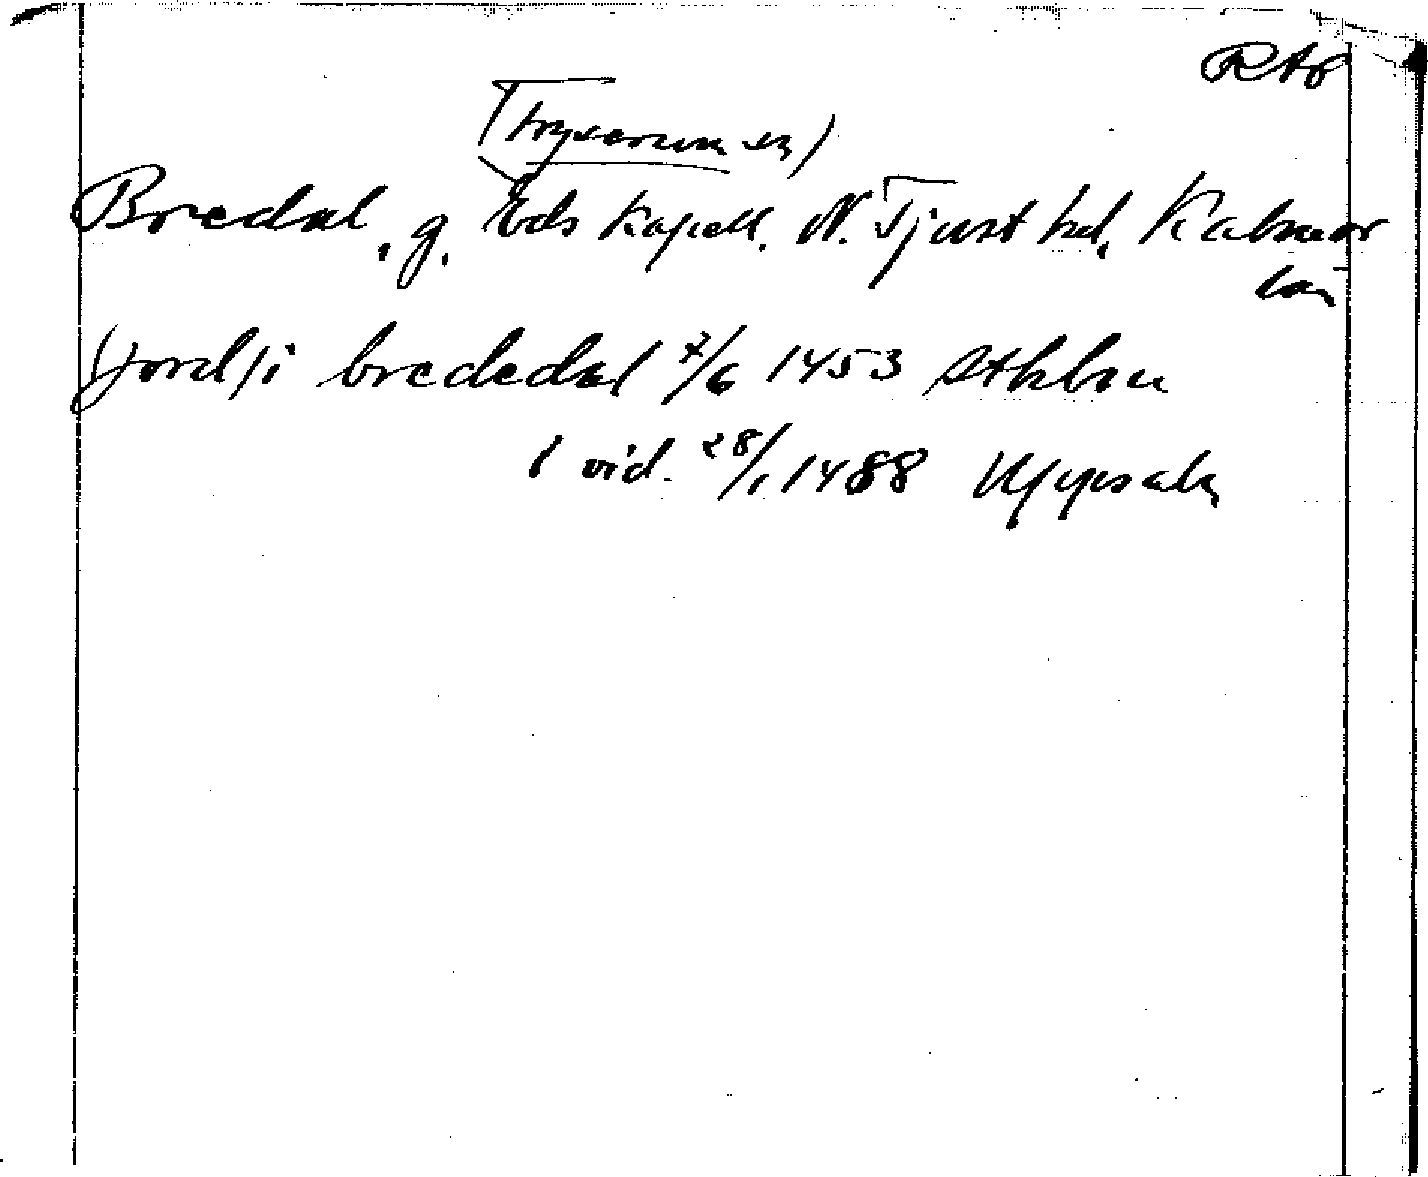 RAp
(Tryserum sn)
Bredal, g. Eds kapell. N. Tjust hd, Kalmar
län
(jord) i brededal 7/6 1453 Sthlm
i vid. 28/1 1488 Uppsala